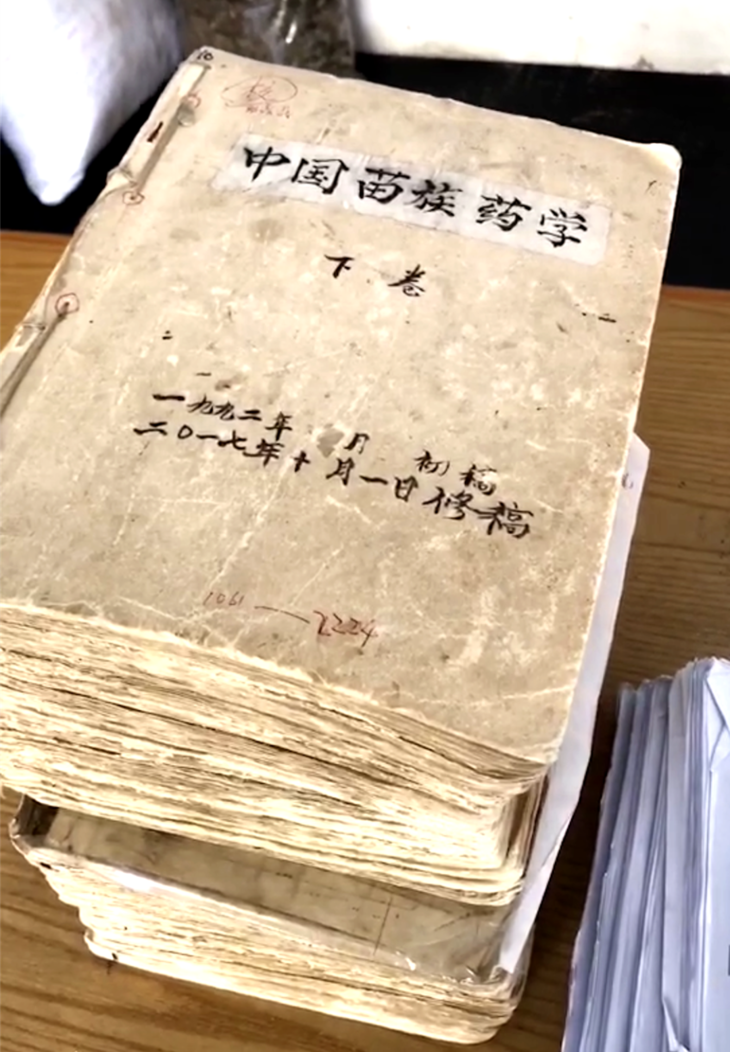 中国苗族药学
下卷
一九九二年 月 初稿
二〇一七年十月一日修稿
1061——2224